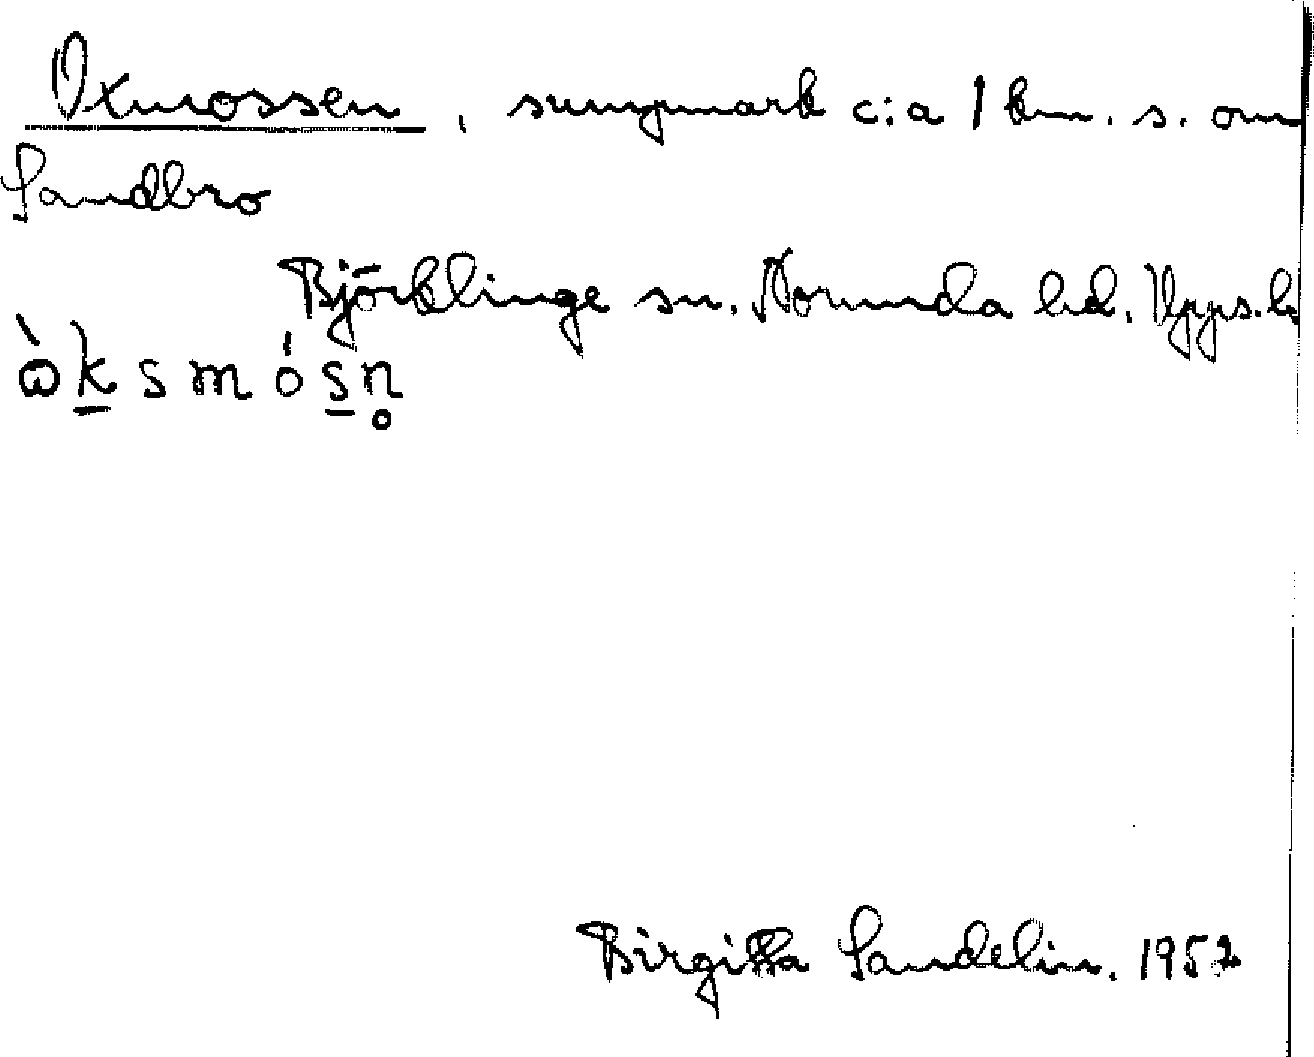 Oxmossen, sumpmark c:a 1 km. s. om
Sandbro
Björklinge sn. Norunda hd. Upps.l
ὼk̲smós̲n̥
Birgitta Sandelin. 1952